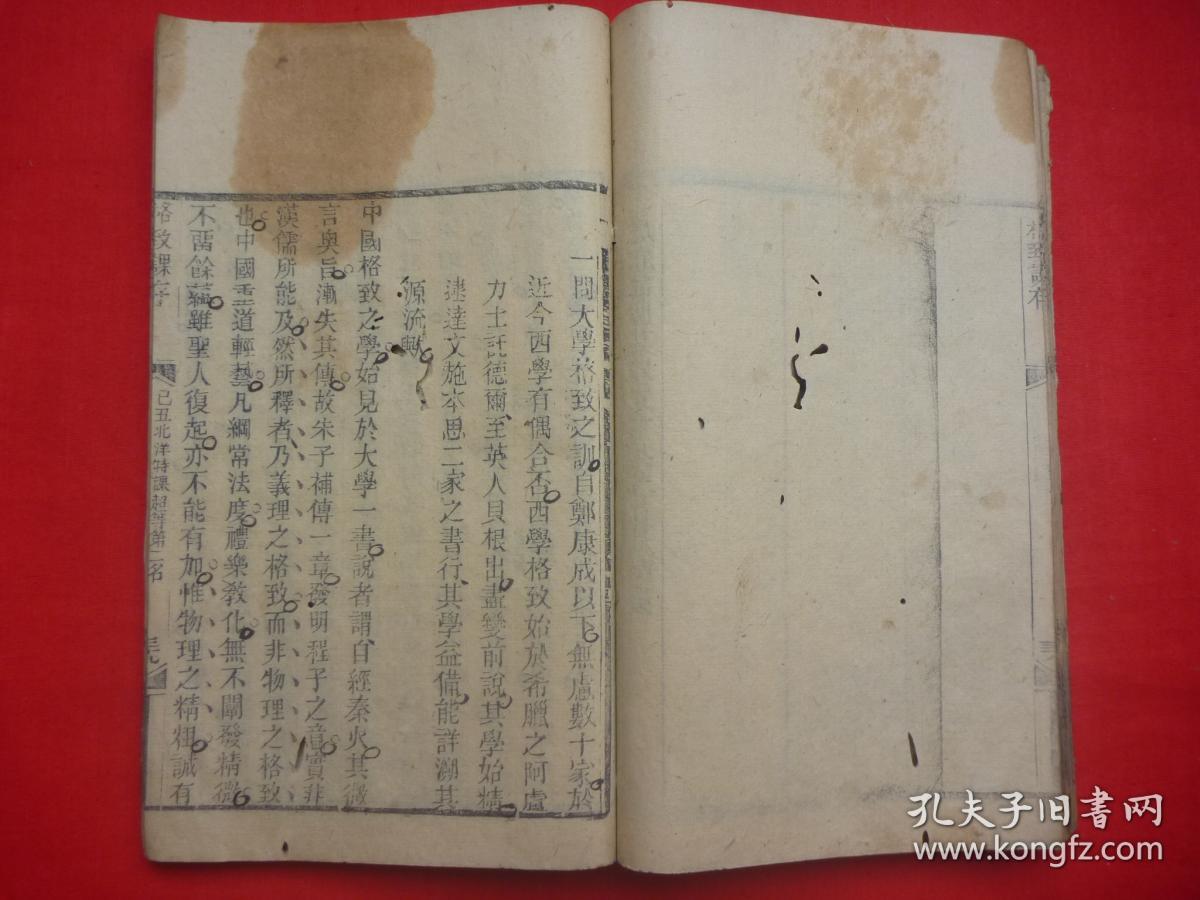 一問大學格致之訓自鄭康成以下無慮數十家於
近今西學有偶合否西學格致始於希臘之阿盧
力士託德爾至英人貝根出盡變前說其學始精
逮達文施本思二家之書行其學益備能詳溯其
源流歟
中國格致之學始見於大學一書說者謂自經秦火其微
言奧旨漸失其傳故朱子補傳一章發明程子之意實非
漢儒所能及然所釋者乃義理之格致而非物理之格致
也中國重道輕藝凡綱常法度禮樂教化無不闡發精微
不留餘蘊雖聖人復起亦不能有加惟物理之精粗誠有
格致課存
己丑北洋特課超等第二名
格致課存
孔夫子旧书网
www.kongfz.com